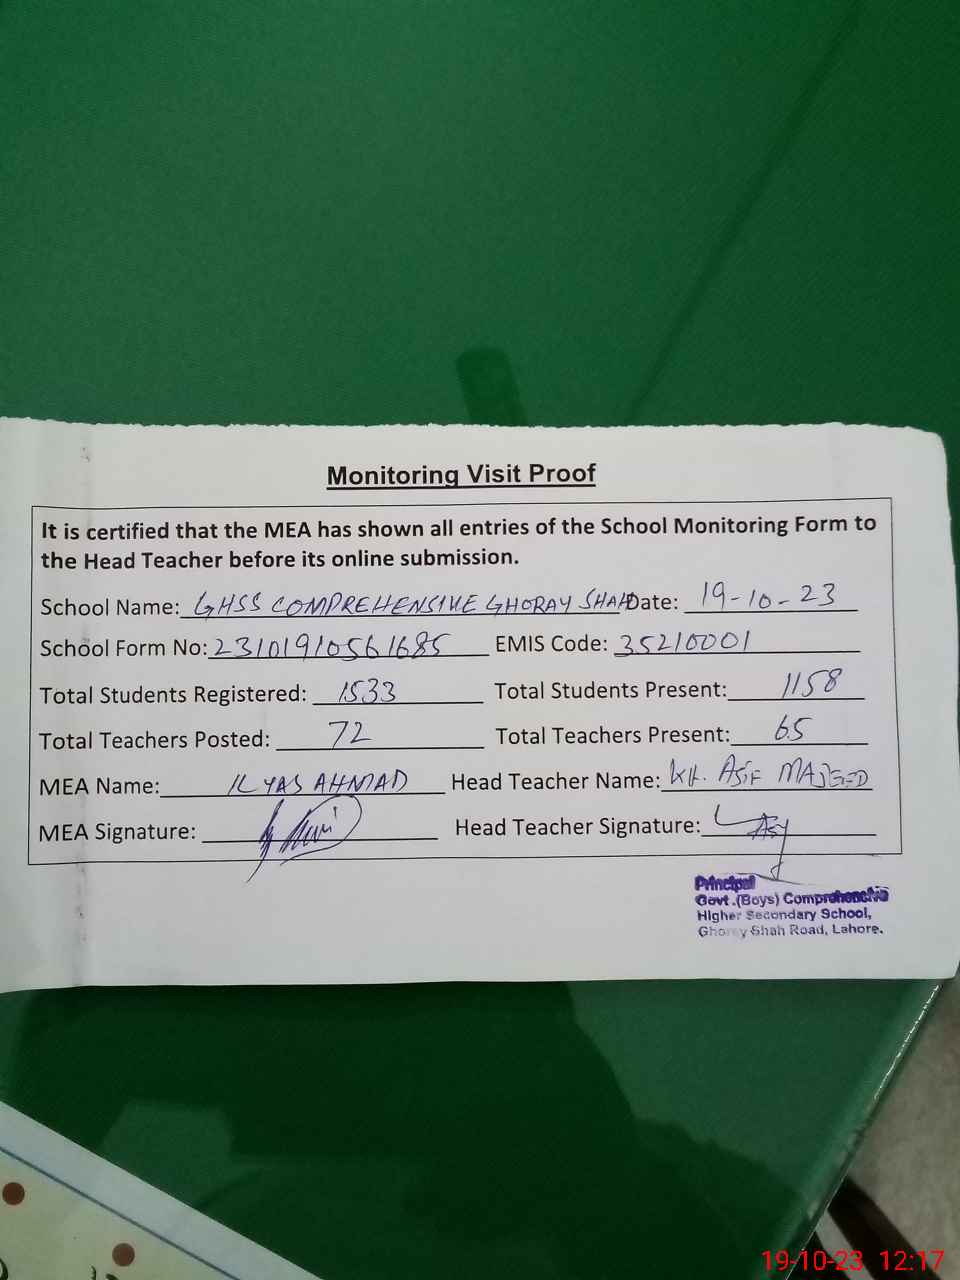 Monitoring Visit Proof
It is certified that the MEA has shown all entries of the School Monitoring Form to
the Head Teacher before its online submission.
School Name: GHSS COMPREHENSIVE GHORAY SHAH Date: 19-10-23
School Form No: 23101910561685 EMIS Code: 35210001
Total Students Registered: 1533 Total Students Present: 1158
Total Teachers Posted: 72 Total Teachers Present: 65
MEA Name: ILYAS AHMAD Head Teacher Name: KH. ASIF MAJEED
MEA Signature: Head Teacher Signature:
Principal
Govt.(Boys) Comprehensive
Higher Secondary School,
Ghorey Shah Road, Lahore.
19-10-23 12:17